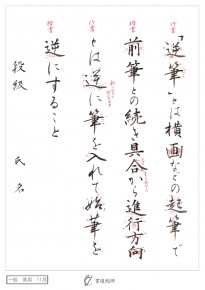 「逆筆」とは横画などの起筆で
前筆との続き具合から進行方向
とは逆に筆を入れて始筆を
逆にすること
段級 氏名
行書
楷書
行書
楷書
一般 実用 11月
書道教師